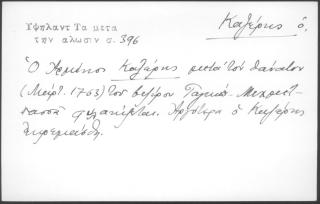 Υψηλαντ Τα μετα
την αλωσιν σ. 396
Καζέρης ὁ,
Ὁ Ἀρμένιος Καζέρης μετὰ τὸν θάνατον
(Μάρτ. 1763) τοῦ βεζίρου Ραγκὶπ Μεχμὲτ
πασσᾶ φυλακίζεται. Ἀργότερα ὁ Καζέρης